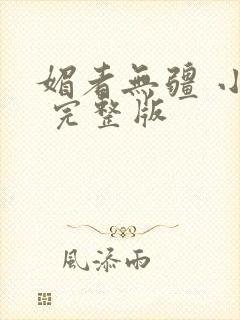 媚者無疆 小
完整版
風添雨